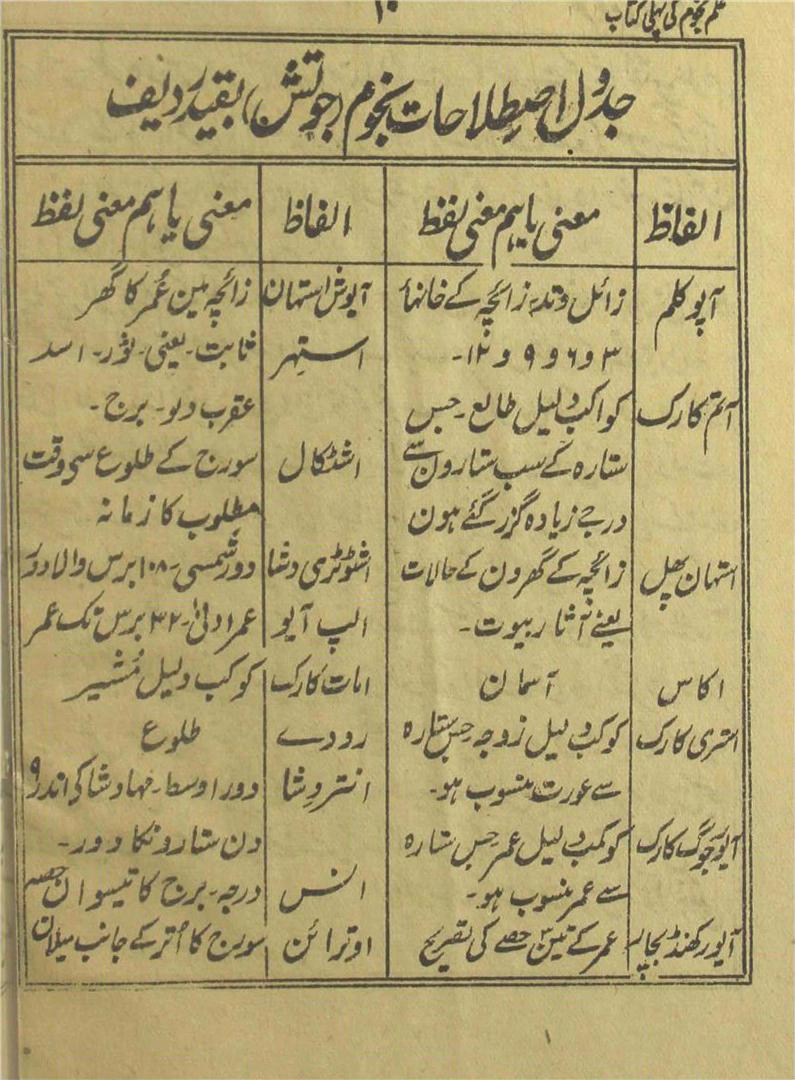 علم نجوم کی پہلی کتاب
۱۰
جدول اصطلاحات نجوم (جوتش) بقید ردیف
الفاظ معنی یا ہم معنی لفظ الفاظ معنی یا ہم معنی لفظ
آپوکلم زائل وتد۔ زائچہ کے خانہائے آیوش استھان زائچہ مین عُمر کا گھر
۳ و ۶ و ۹ و ۱۲۔ استہر ثابت۔ یعنی۔ ثور۔ اسد
آتم کارک کواکب دلیل طالع۔ جس عقرب دلو۔ برج۔
ستارہ کے سب ستارون سے اشٹکال سورج کے طلوع سی وقت
درجے زیادہ گزر گئے ہون مطلوب کا زمانہ
استہان پھل زائچہ کے گھرون کے حالات اشٹوتری دشا دور شمسی۔ ۱۰۸ برس والا دور
یعنے آثار بیوت۔ الپ آیو عمر ادنیٰ۔ ۳۲ برس تک عمر
اکاس آسمان امات کارک کوکب دلیل مُشیر
استری کارک کوکب دلیل زوجہ جس ستارہ رودے طلوع
سے عورت منسوب ہو۔ انتردشا دور اوسط۔ مہادشا کی اندر ۹
آیور جوگ کارک کوکب دلیل عمر جس ستارہ دن ستارونکا دور۔
سے عمر منسوب ہو۔ انس درجہ۔ برج کا تیسوان حصہ
آیور کھنڈ بچار عمر کے تین ۳ حصے کی تصریح اوترائن سورج کا اُتر کے جانب میلان